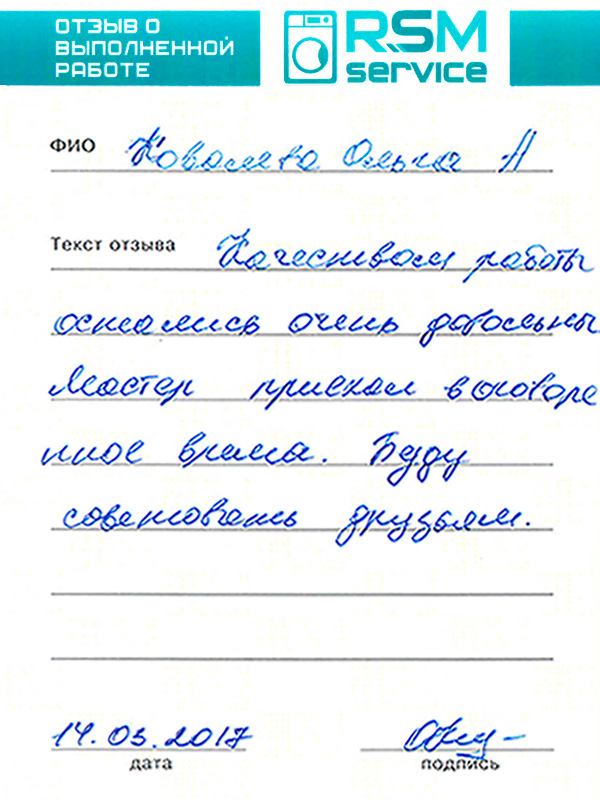 ОТЗЫВ О
ВЫПОЛНЕННОЙ
РАБОТЕ
RSM
service
ФИО Ковалева Ольга А
Текст отзыва Качеством работы
остались очень довольны
Мастер приехал в оговоре
нное время. Буду
советовать друзьям.
14.03.2017
дата подпись